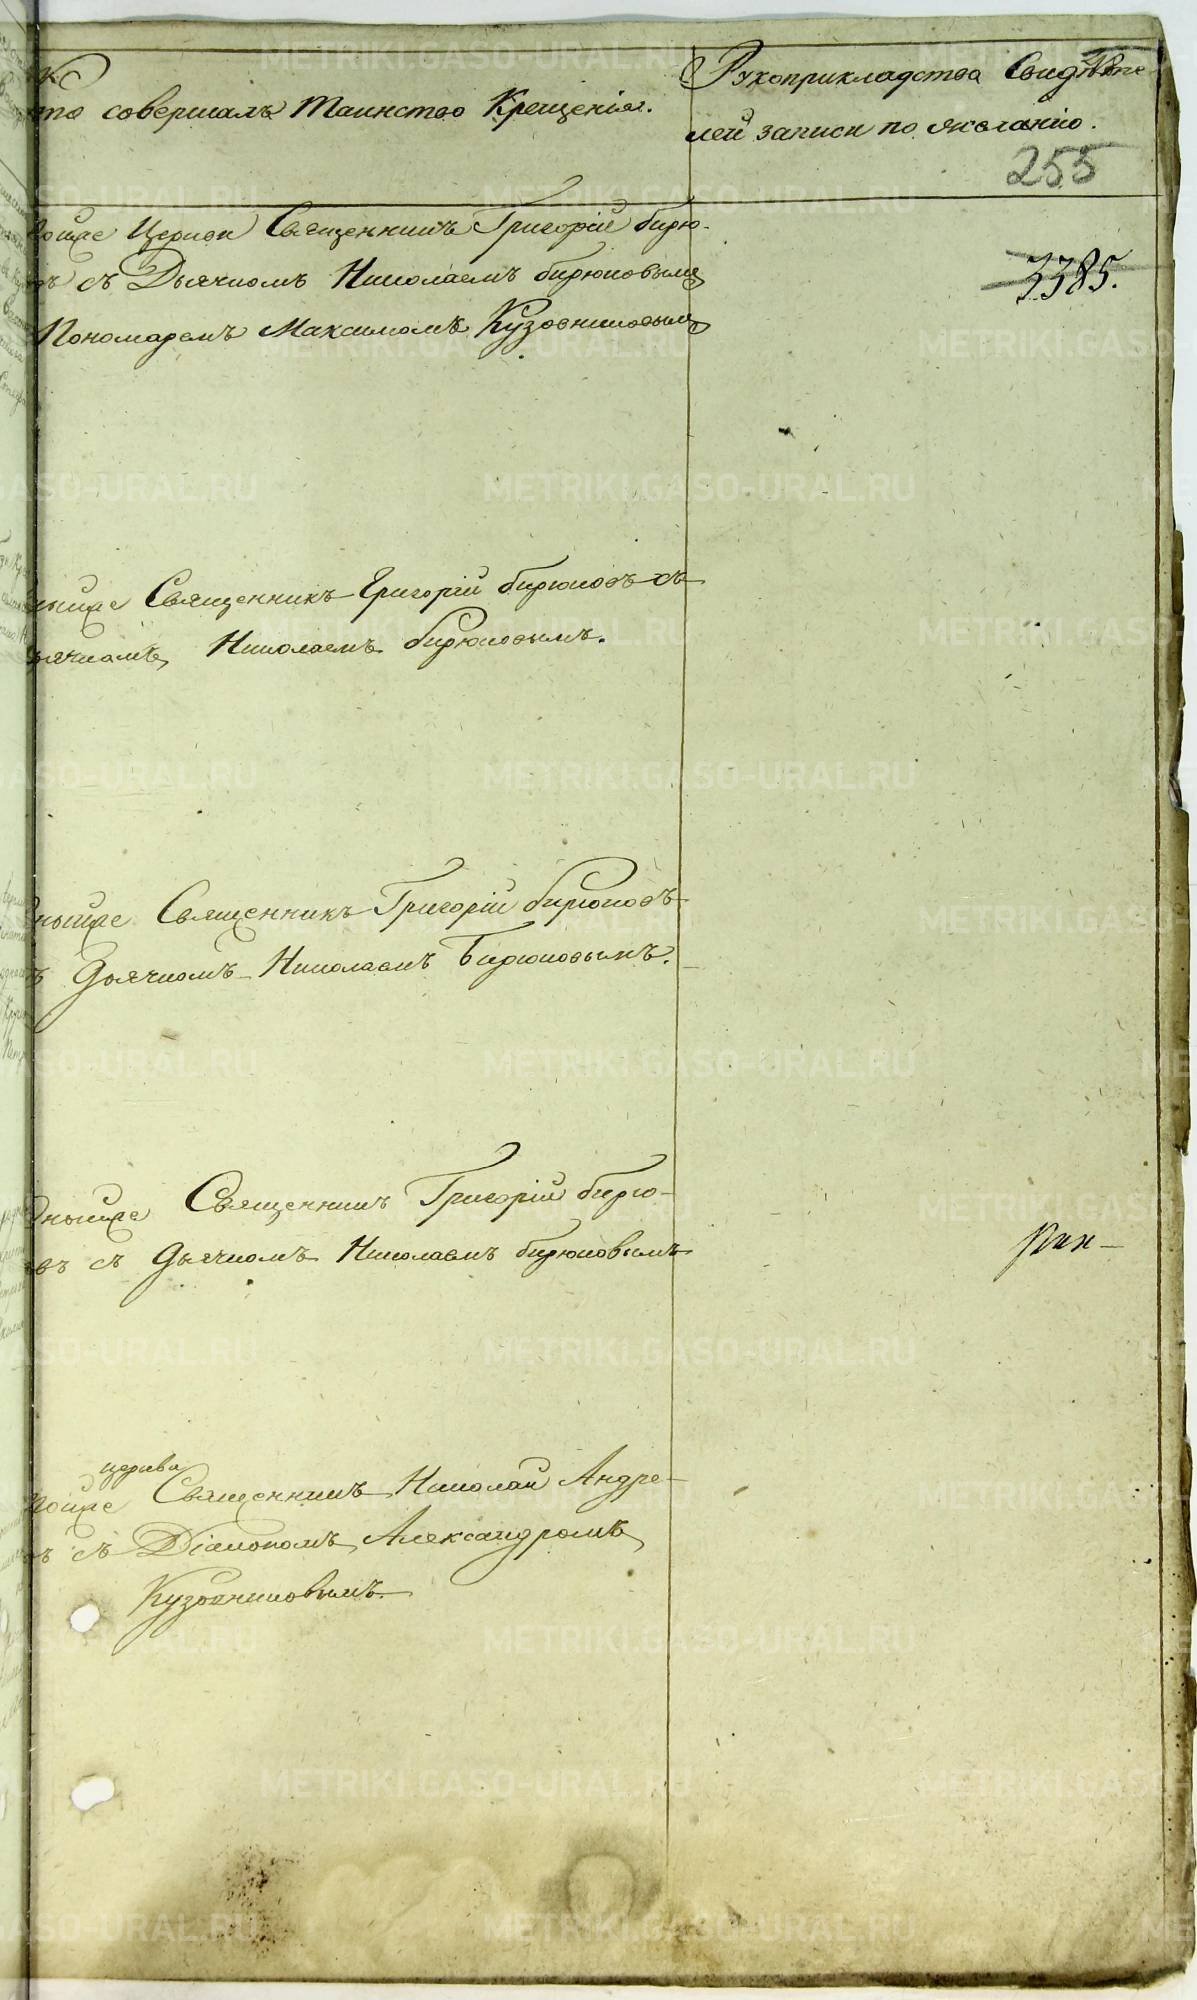 Кто совершалъ Таинство Крещенія.
Рукоприкладства Свидѣте-
лей записи по желанію.
255
Тойже Церкви Священникъ Григорій Бирю-
ковъ съ Дьячкомъ Николаемъ Бирюковымъ
Пономаремъ Максимомъ Кузовниковымъ
3385.
Священникъ Григорій Бирюковъ съ
Дьячкомъ Николаемъ Бирюковымъ.
Священникъ Григорій Бирюковъ
съ Дьячкомъ Николаемъ Бирюковымъ.
Священникъ Григорій Бирю-
ковъ съ Дьячкомъ Николаемъ Бирюковымъ
церкви
Тойже Священникъ Николай Андре-
съ Діакономъ Александромъ
Кузовниковымъ.
METRIKI.GASO-URAL.RU